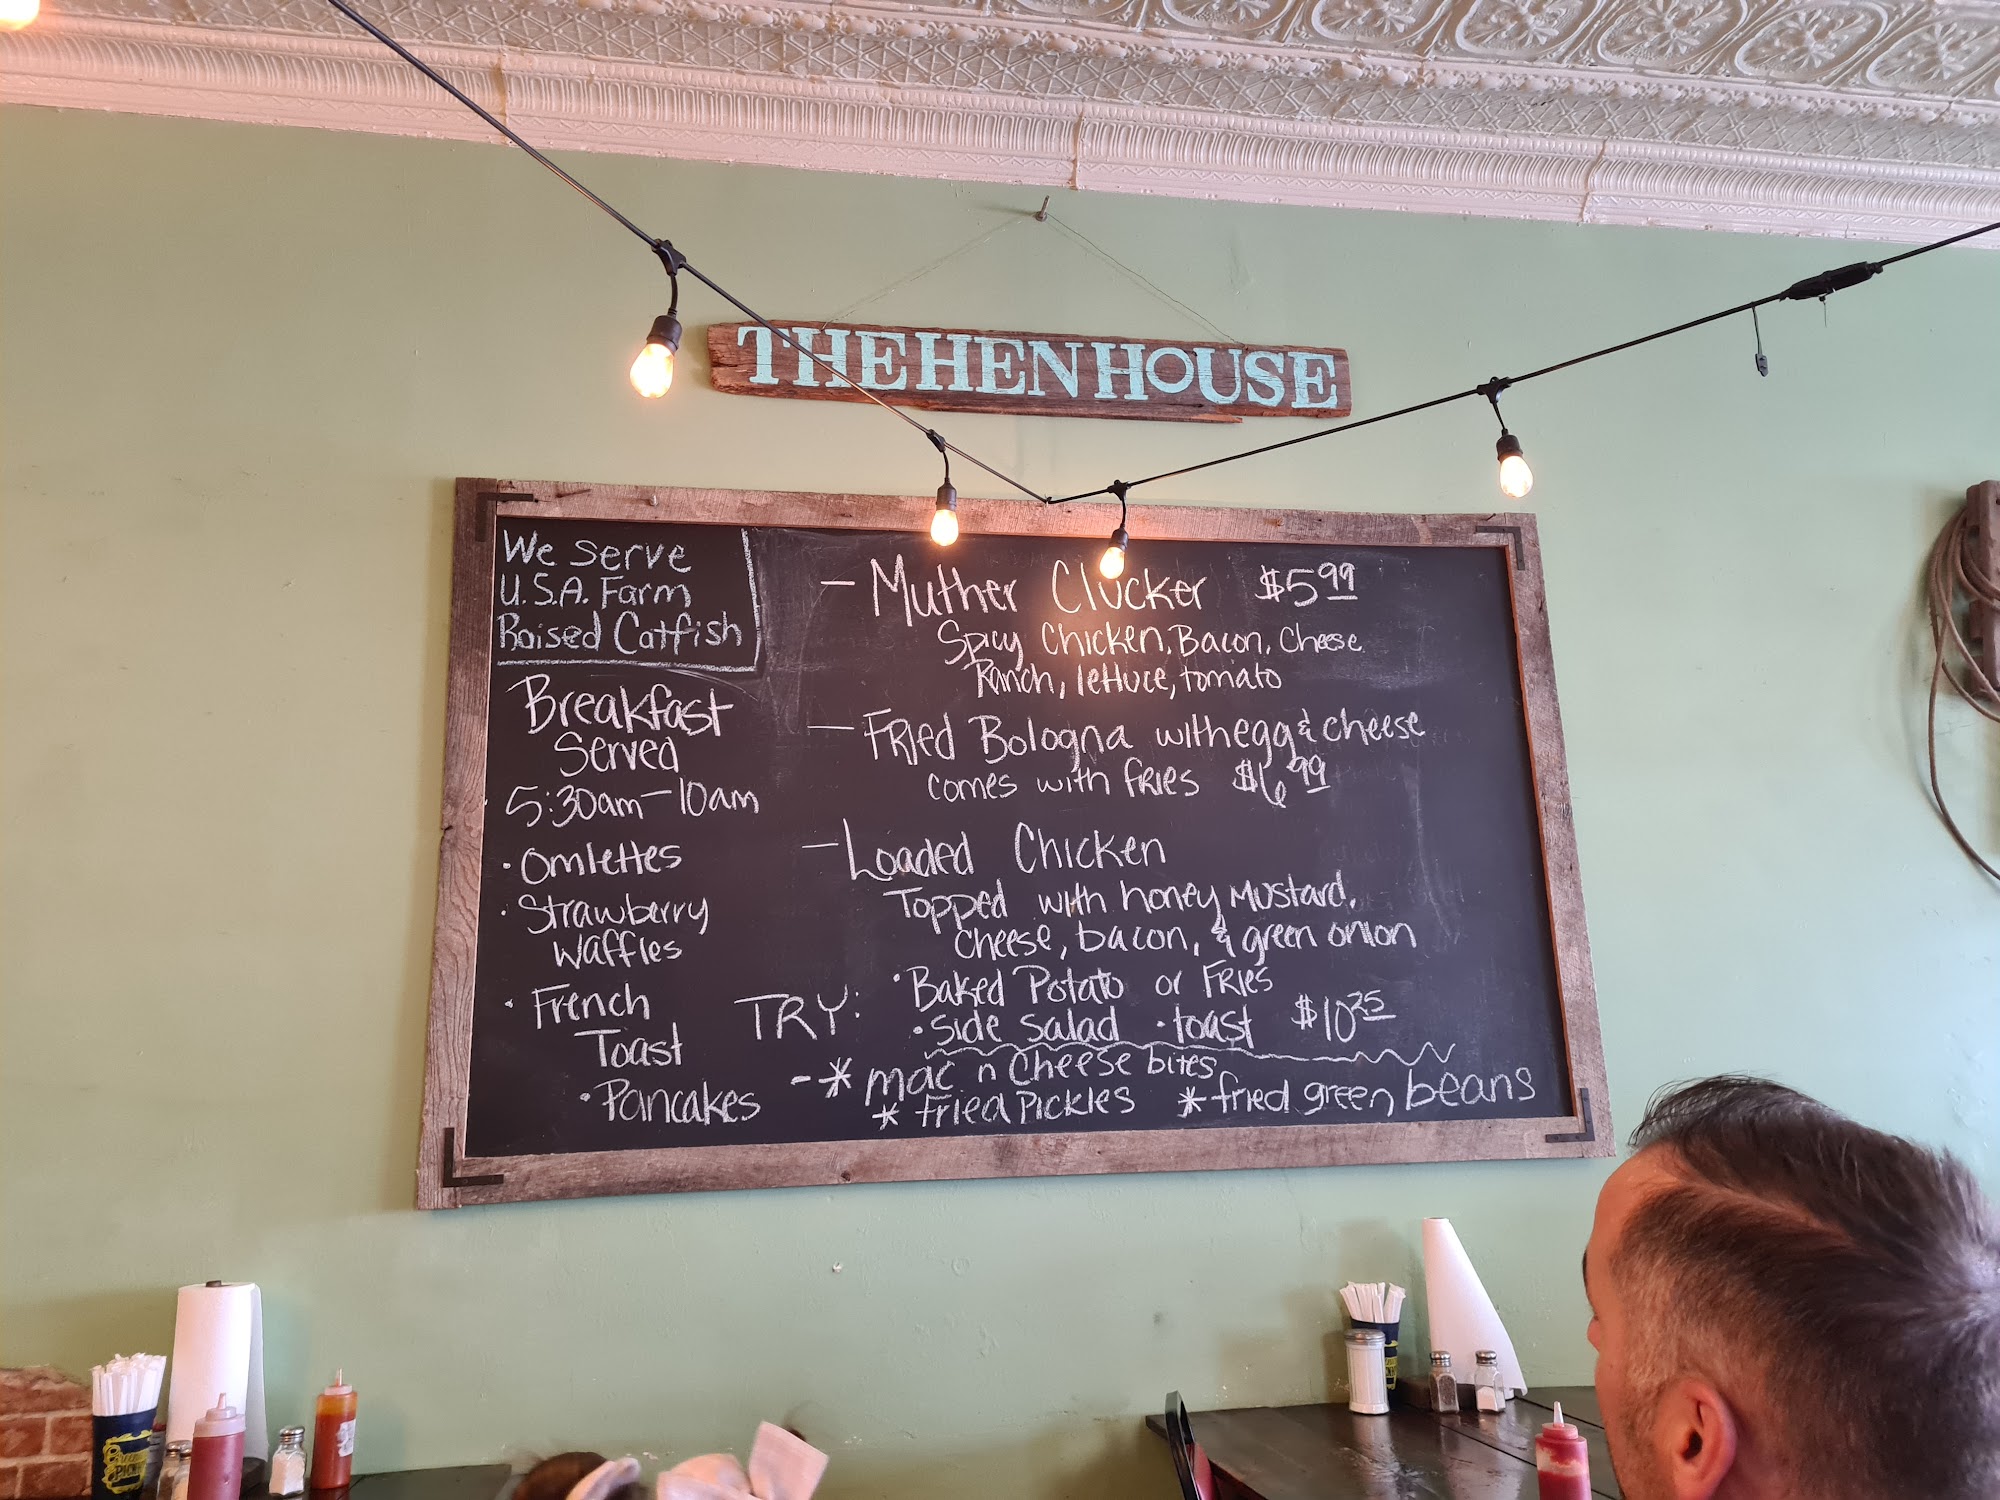 THE HEN HOUSE
We serve
U.S.A. Farm
Raised Catfish
Breakfast
Served
5:30am-10am
• Omlettes
• Strawberry
Waffles
• French
Toast
• Pancakes
- Muther Clucker $5.99
Spicy Chicken, Bacon, Cheese
Ranch, lettuce, tomato
- Fried Bologna with egg & cheese
comes with fries $6.99
- Loaded Chicken
Topped with honey mustard,
cheese, bacon, & green onion
• Baked Potato or Fries
• side salad • toast $10.25
TRY:
- * mac n cheese bites
* fried pickles * fried green beans